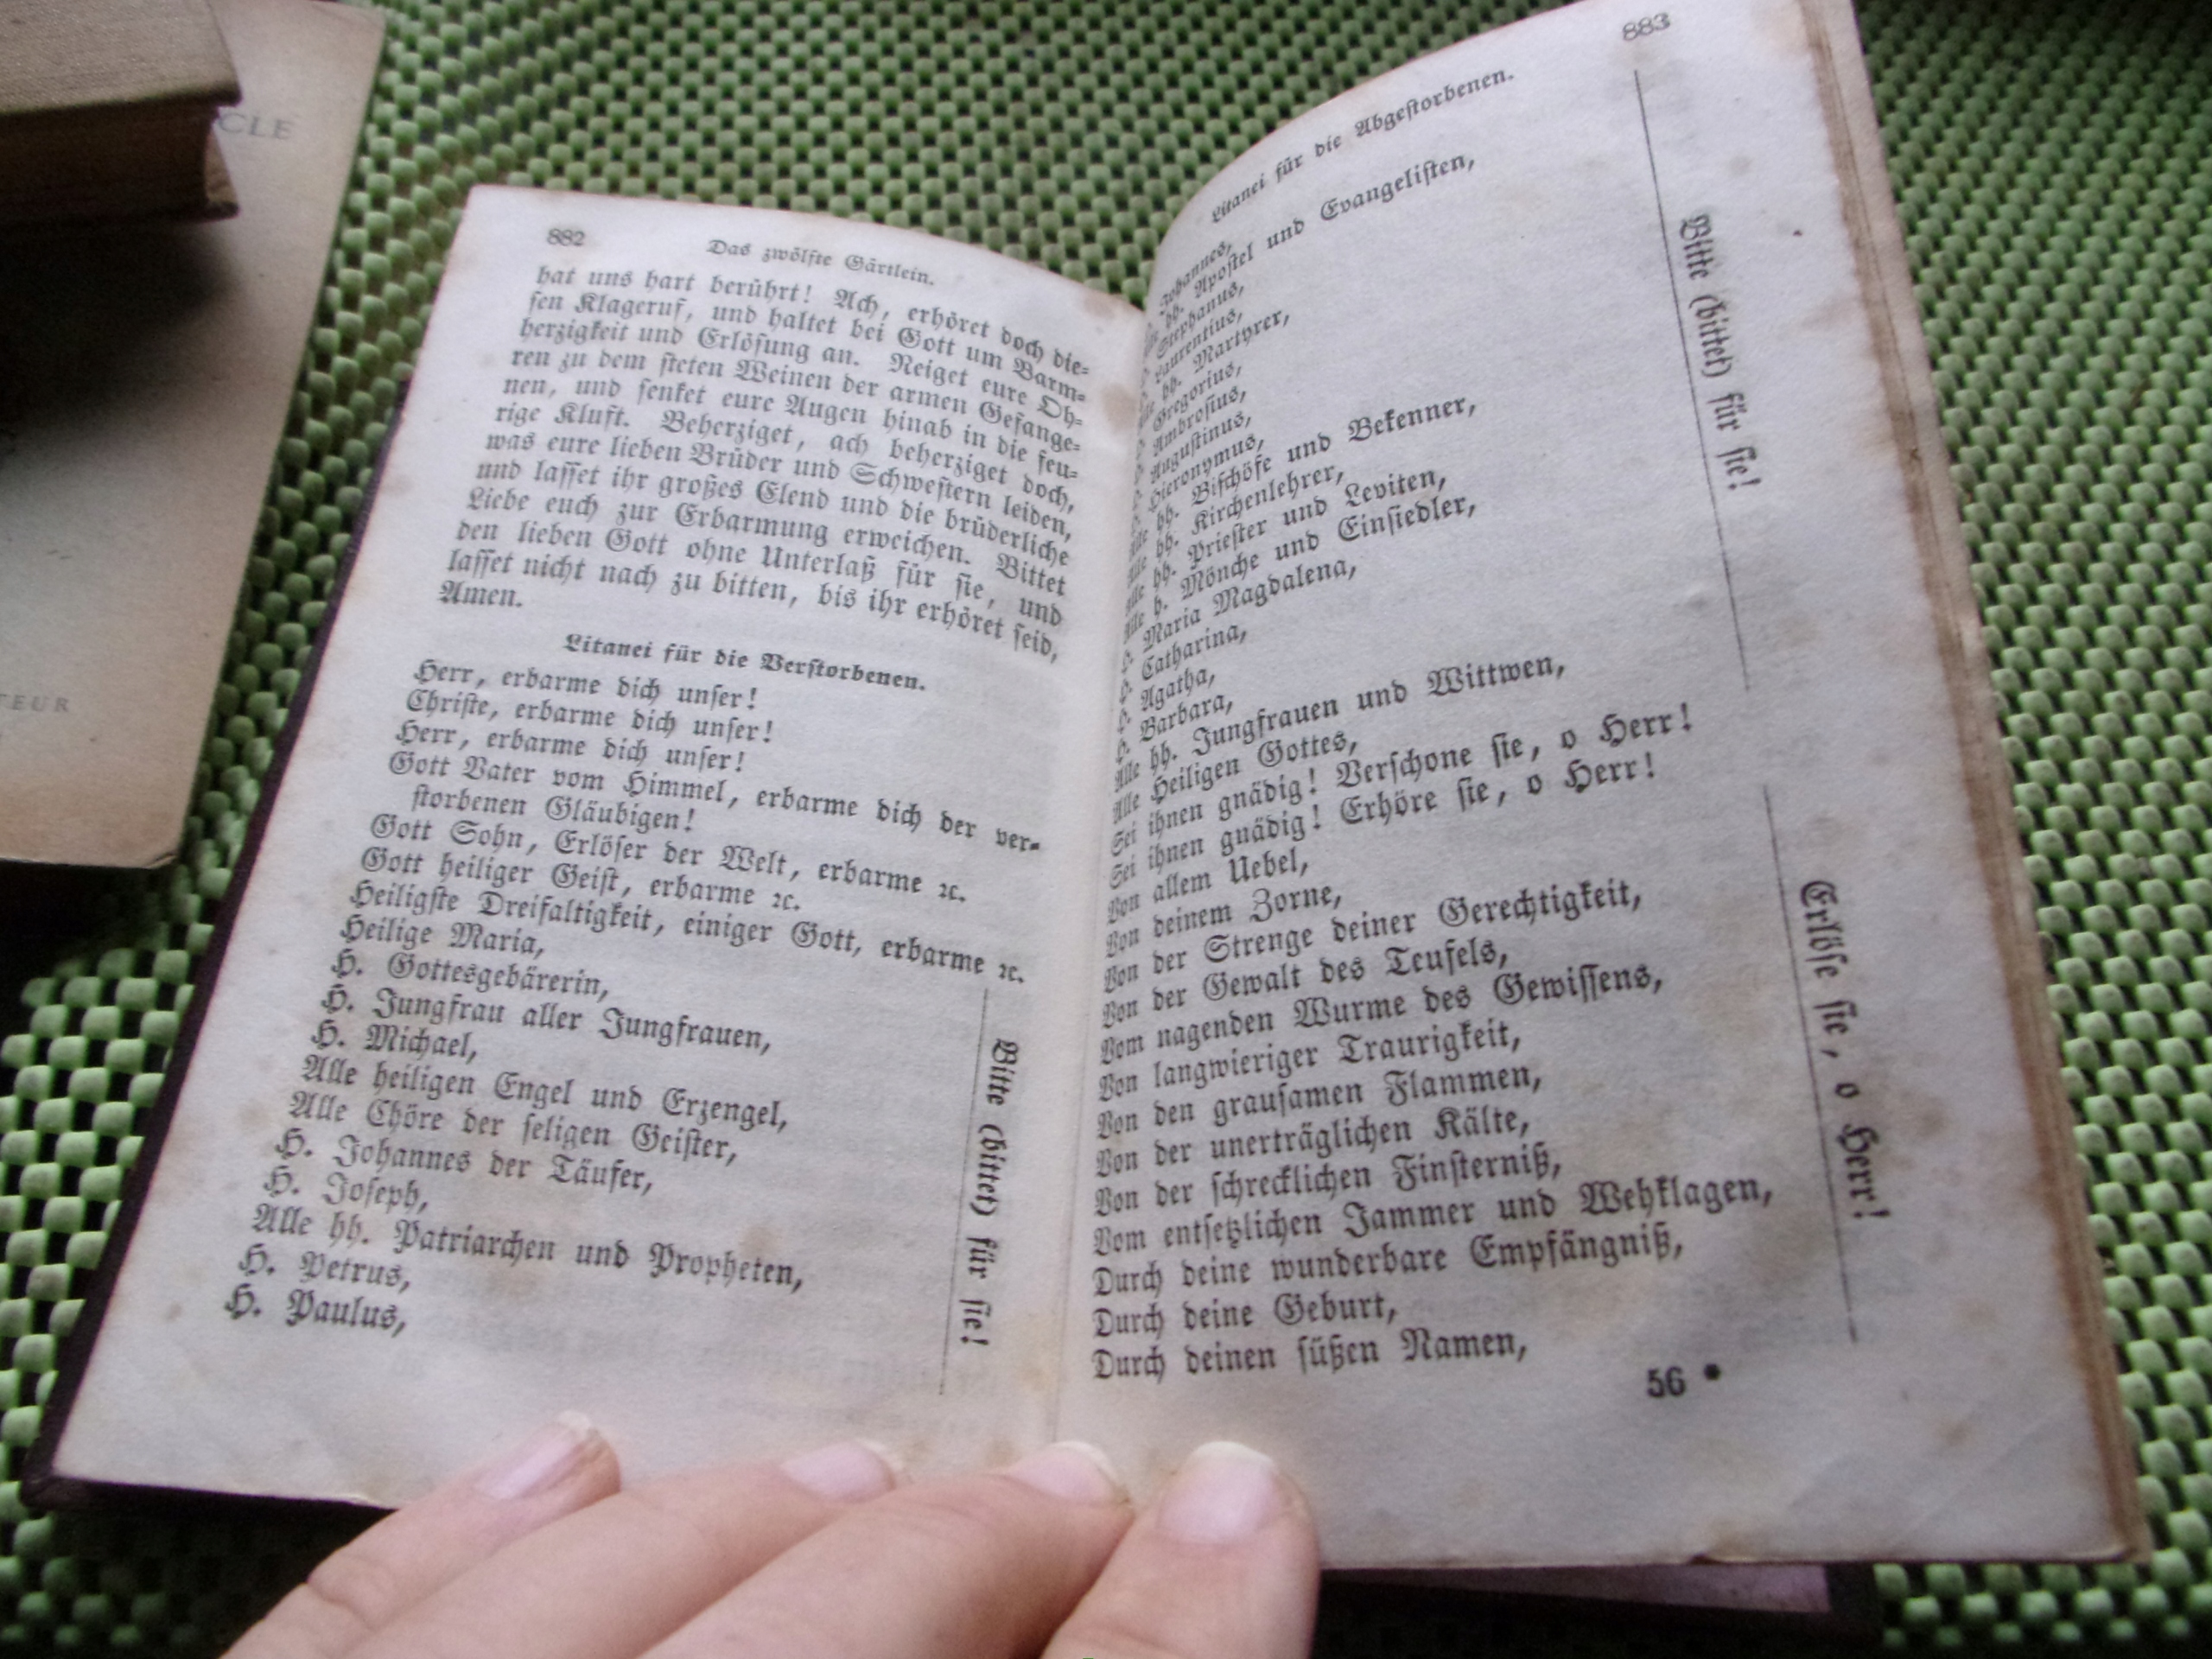 CLE
TEUR
882
Das zwölfte Gärtlein.
hat uns hart berührt! Ach, erhöret doch die-
sen Klageruf, und haltet bei Gott um Barm-
herzigkeit und Erlösung an. Neiget eure Oh-
ren zu dem steten Weinen der armen Gefange-
nen, und senket eure Augen hinab in die feu-
rige Kluft. Beherziget, ach beherziget doch,
was eure lieben Brüder und Schwestern leiden,
und lasset ihr großes Elend und die brüderliche
Liebe euch zur Erbarmung erweichen. Bittet
den lieben Gott ohne Unterlaß für sie, und
lasset nicht nach zu bitten, bis ihr erhöret seid,
Amen.
Litanei für die Verstorbenen.
Herr, erbarme dich unser!
Christe, erbarme dich unser!
Herr, erbarme dich unser!
Gott Vater vom Himmel, erbarme dich der ver-
storbenen Gläubigen!
Gott Sohn, Erlöser der Welt, erbarme ꝛc.
Gott heiliger Geist, erbarme ꝛc.
Heiligste Dreifaltigkeit, einiger Gott, erbarme ꝛc.
Heilige Maria,
H. Gottesgebärerin,
H. Jungfrau aller Jungfrauen,
H. Michael,
Alle heiligen Engel und Erzengel,
Alle Chöre der seligen Geister,
H. Johannes der Täufer,
H. Joseph,
Alle hh. Patriarchen und Propheten,
H. Petrus,
H. Paulus,
Bitte (bittet) für sie!
883
Litanei für die Abgestorbenen.
Johannes,
hh. Apostel und Evangelisten,
Stephanus,
Laurentius,
hh. Martyrer,
Gregorius,
Ambrosius,
Augustinus,
Hieronymus,
hh. Bischöfe und Bekenner,
Alle hh. Kirchenlehrer,
Alle hh. Priester und Leviten,
Alle h. Mönche und Einsiedler,
H. Maria Magdalena,
H. Catharina,
H. Agatha,
H. Barbara,
Alle hh. Jungfrauen und Wittwen,
Alle Heiligen Gottes,
Bitte (bittet) für sie!
Sei ihnen gnädig! Verschone sie, o Herr!
Sei ihnen gnädig! Erhöre sie, o Herr!
Von allem Uebel,
Von deinem Zorne,
Von der Strenge deiner Gerechtigkeit,
Von der Gewalt des Teufels,
Vom nagenden Wurme des Gewissens,
Von langwieriger Traurigkeit,
Von den grausamen Flammen,
Von der unerträglichen Kälte,
Von der schrecklichen Finsterniß,
Vom entsetzlichen Jammer und Wehklagen,
Durch deine wunderbare Empfängniß,
Durch deine Geburt,
Durch deinen süßen Namen,
Erlöse sie, o Herr!
56 *